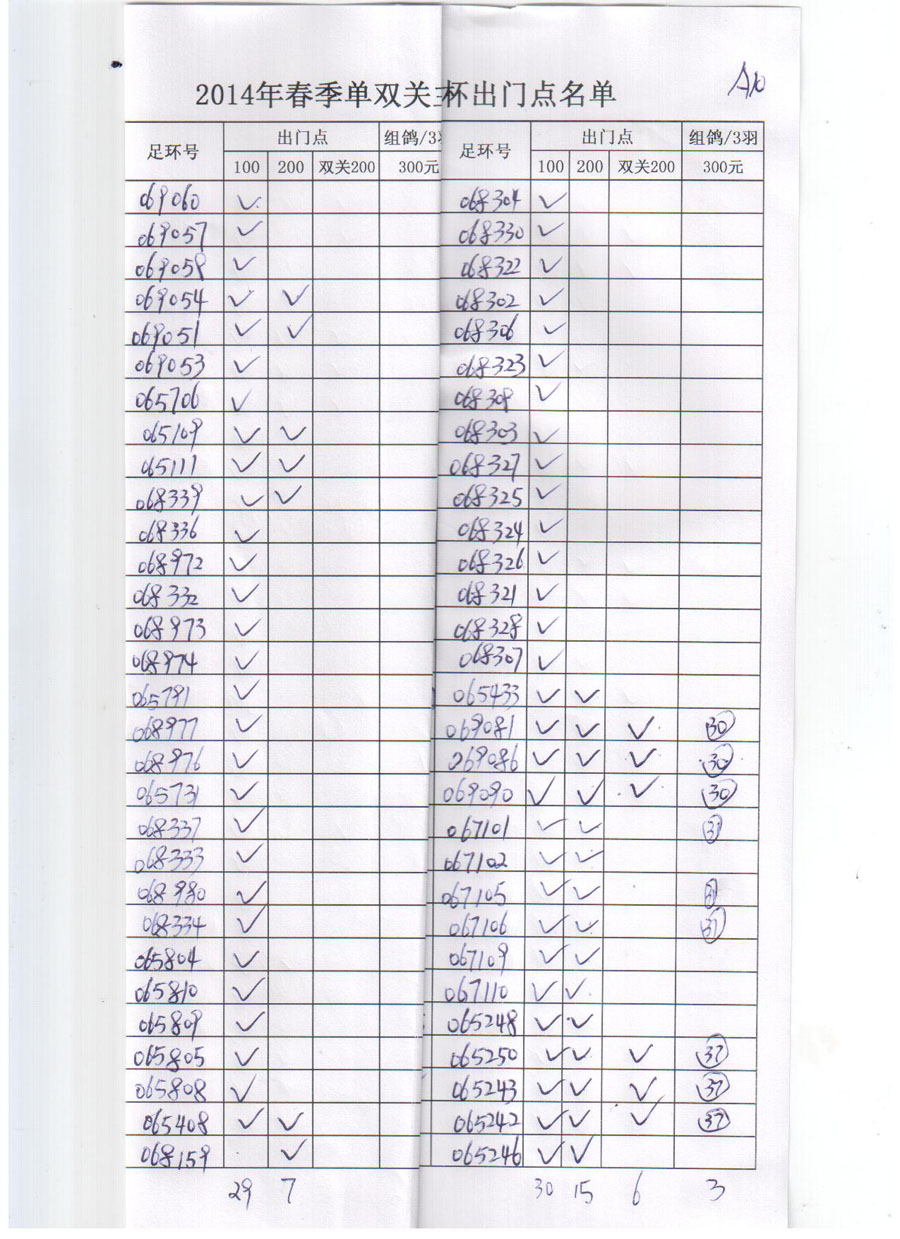 A10
2014年春季单双关主杯出门点名单
足环号 出门点 组鸽/3羽 足环号 出门点 组鸽/3羽
100 200 双关200 300元 100 200 双关200 300元
069060 ✓ 068304 ✓
069057 ✓ 068330 ✓
069058 ✓ 068322 ✓
069054 ✓ ✓ 068302 ✓
069051 ✓ ✓ 068306 ✓
069053 ✓ 068323 ✓
065706 ✓ 068308 ✓
065109 ✓ ✓ 068303 ✓
065111 ✓ ✓ 068327 ✓
068339 ✓ ✓ 068325 ✓
068336 ✓ 068324 ✓
068972 ✓ 068326 ✓
068332 ✓ 068321 ✓
068973 ✓ 068328 ✓
068974 ✓ 068307 ✓
065791 ✓ 065433 ✓ ✓
068977 ✓ 069081 ✓ ✓ ✓ 30
068976 ✓ 069086 ✓ ✓ ✓ 30
065731 ✓ 069090 ✓ ✓ ✓ 30
068337 ✓ 067101 ✓ ✓ 31
068333 ✓ 067102 ✓ ✓
068980 ✓ 067105 ✓ ✓ 31
068334 ✓ 067106 ✓ ✓ 31
065804 ✓ 067109 ✓ ✓
065810 ✓ 067110 ✓ ✓
065809 ✓ 065248 ✓ ✓
065805 ✓ 065250 ✓ ✓ ✓ 37
065808 ✓ 065243 ✓ ✓ ✓ 37
065408 ✓ ✓ 065242 ✓ ✓ ✓ 37
068159 ✓ 065246 ✓ ✓
29 7 30 15 6 3